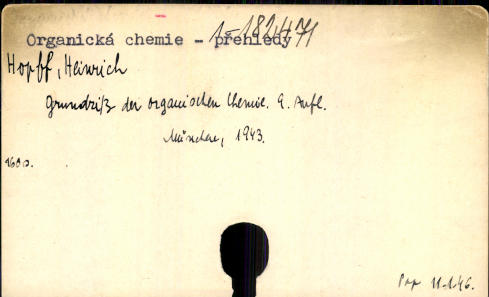 1-182.471
Organická chemie - přehledy
Hopff, Heinrich
Grundriß der organischen Chemie. 9. Aufl.
München, 1943.
160 s.
11.1.46.